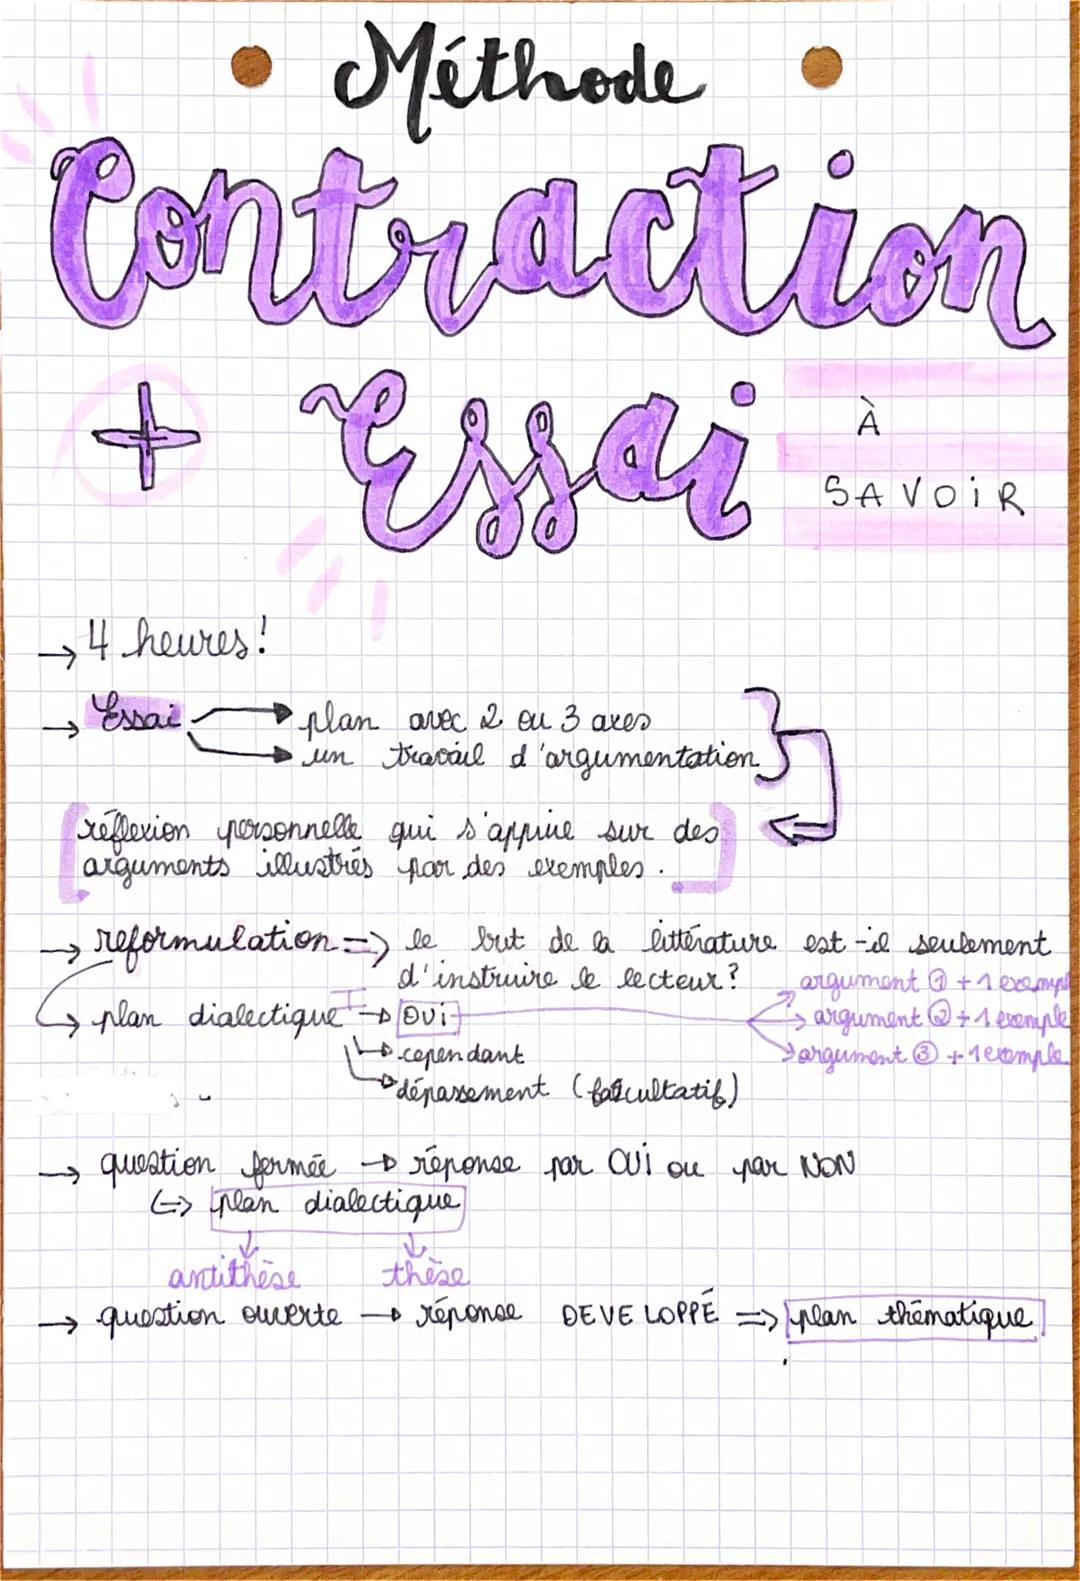 Méthode
Contraction
+ Essai
À
SAVOIR
→ 4 heures!
→ Essai → plan avec 2 ou 3 axes
→ un travail d'argumentation
[réflexion personnelle qui s'appuie sur des
arguments illustrés par des exemples.]
→ reformulation => le but de la littérature est-il seulement
d'instruire le lecteur?
argument ① + 1 exempl
→ plan dialectique I → OUi
→ argument ② + 1 exemple
→ cependant
→ argument ③ + 1 exemple
→ dépassement (facultatif)
→ question fermée → réponse par OUi ou par NON
↳=> plan dialectique
antithèse thèse
→ question ouverte → réponse DEVELOPPÉ => plan thématique